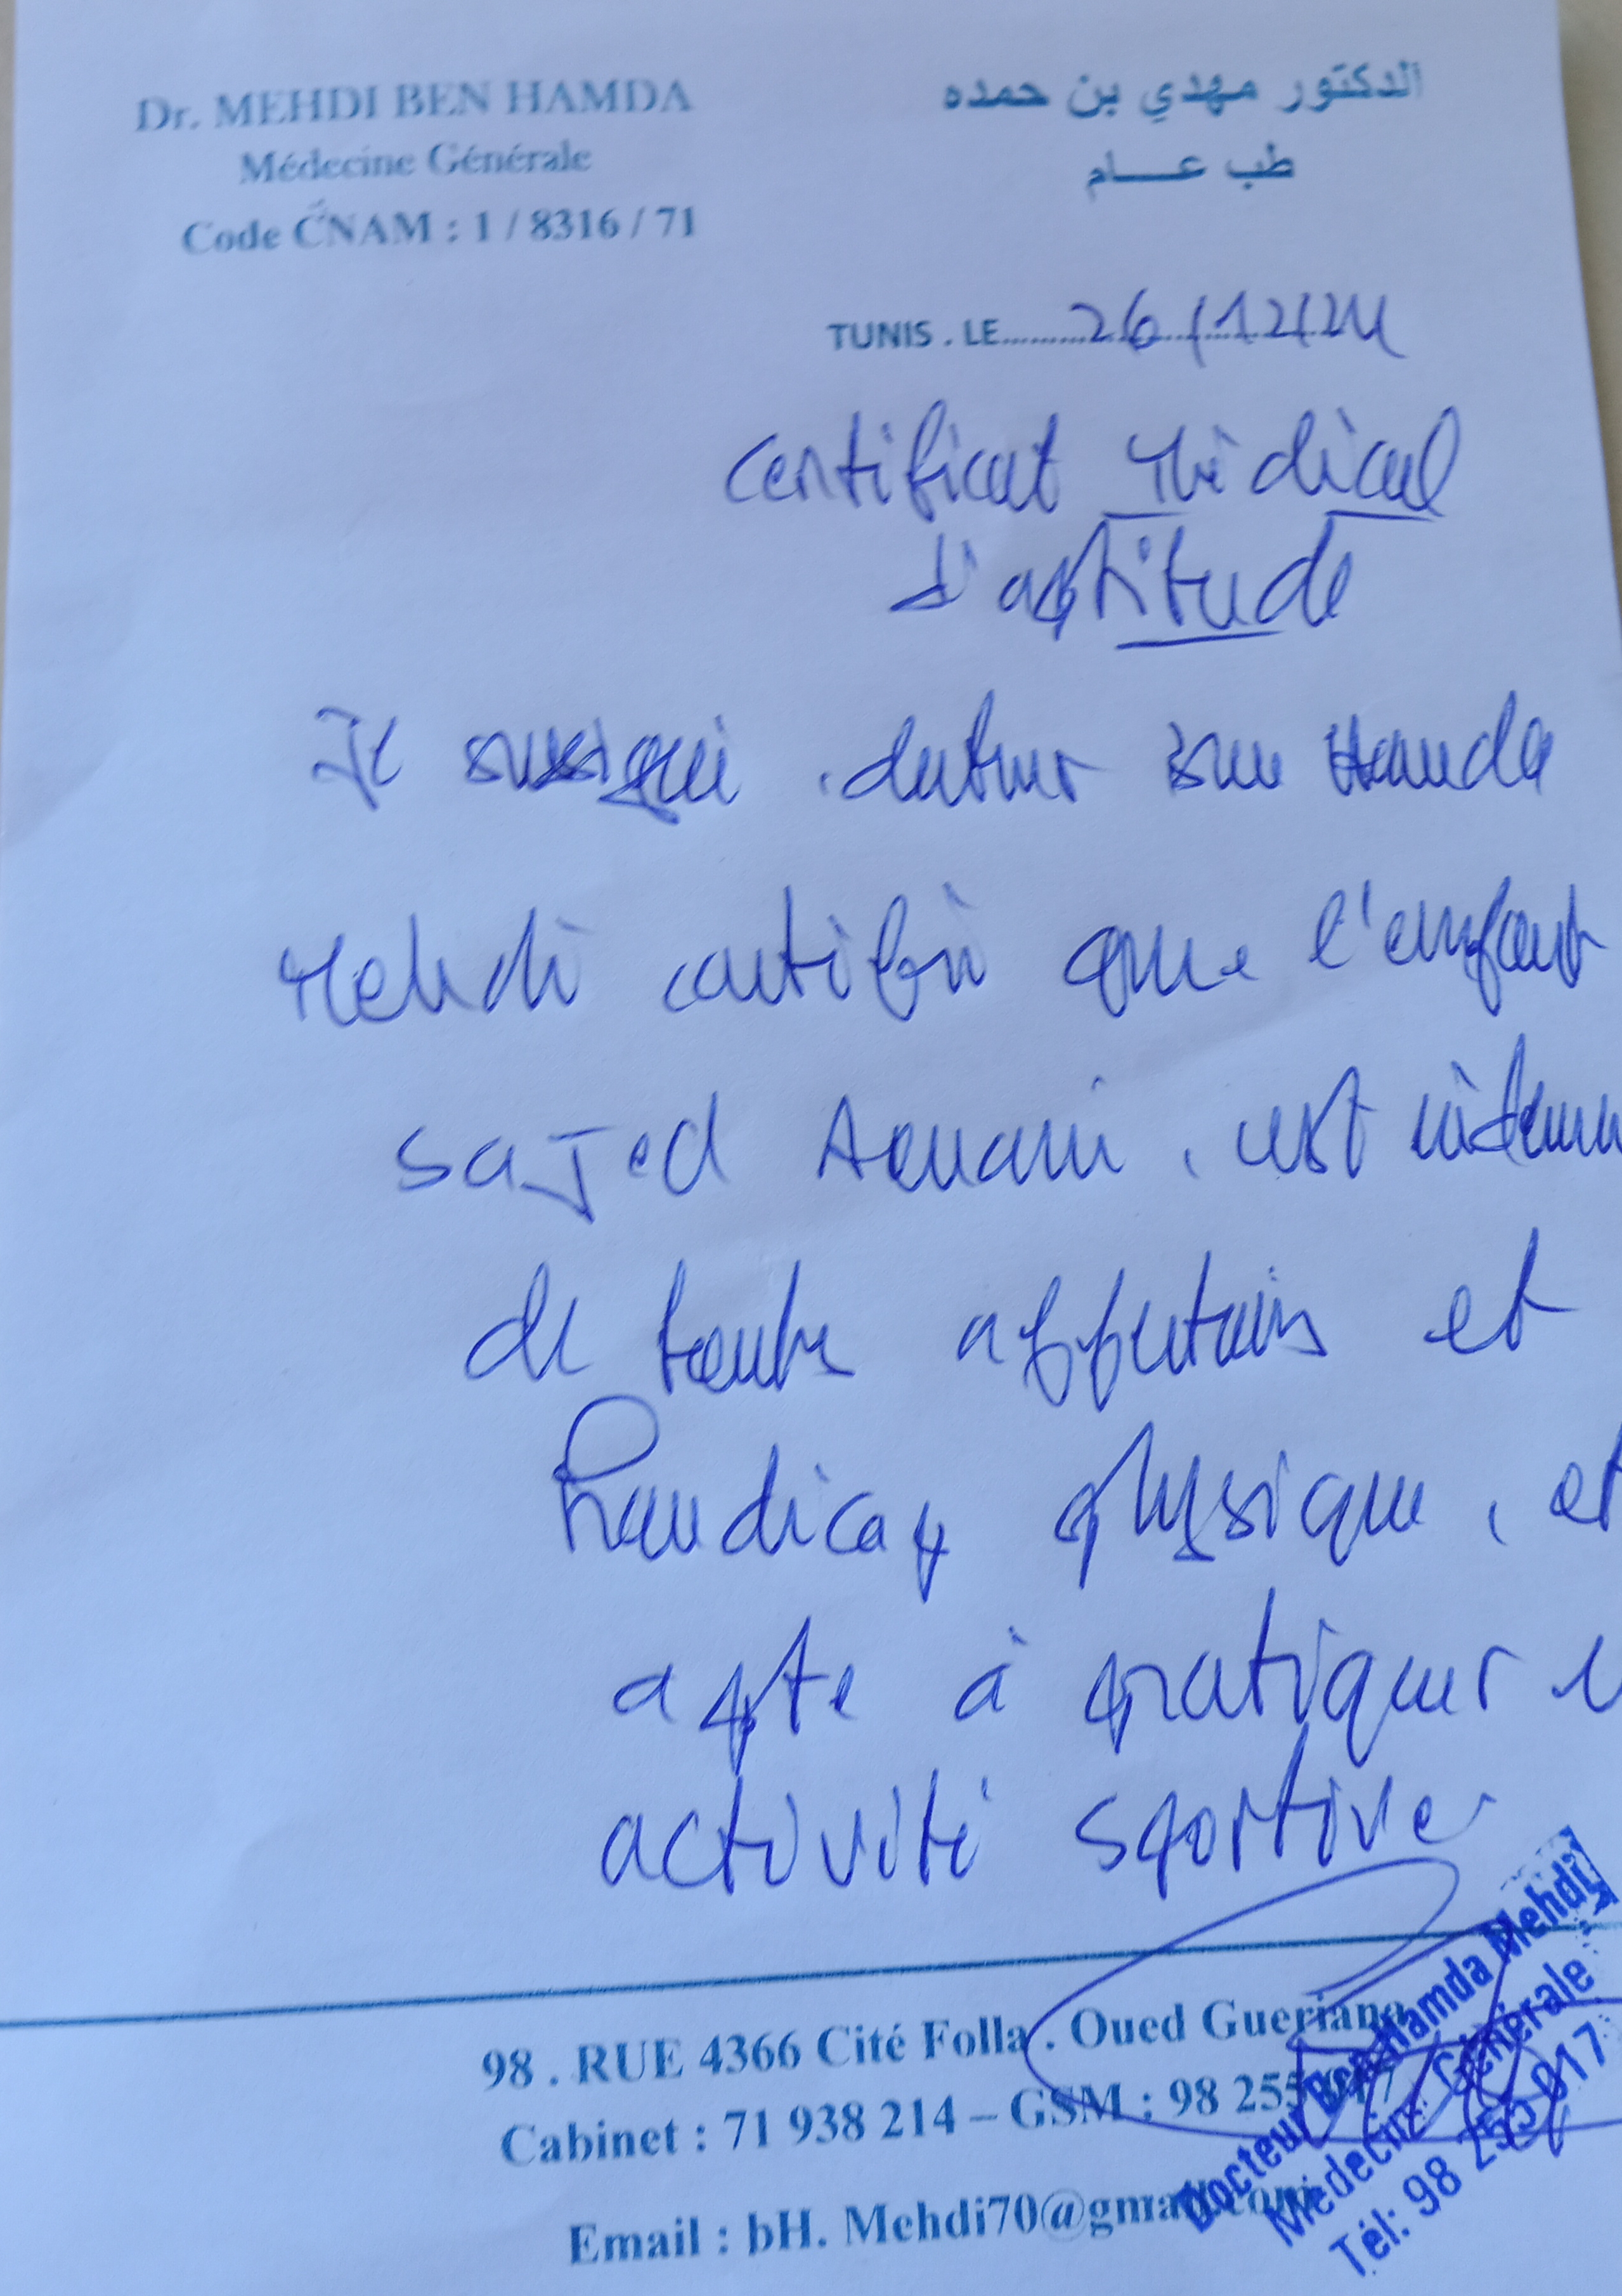 Dr. MEHDI BEN HAMDA
Médecine Générale
Code CNAM : 1 / 8316 / 71
الدكتور مهدي بن حمده
طب عــــام
TUNIS . LE 26/12/24
Certificat Médical
d'aptitude
Je soussigné docteur Ben Hamda
Mehdi certifié que l'enfant
Sajed , est
de toutes affections et
handicap physique, et
apte à pratiquer
activité sportive
98 . RUE 4366 Cité Folla . Oued Gueriana
Cabinet : 71 938 214 – GSM : 98 255 017
Email : bH. Mehdi70@gmail.com
Docteur Ben Hamda Mehdi
Médecine Générale
Tél: 98 255 017